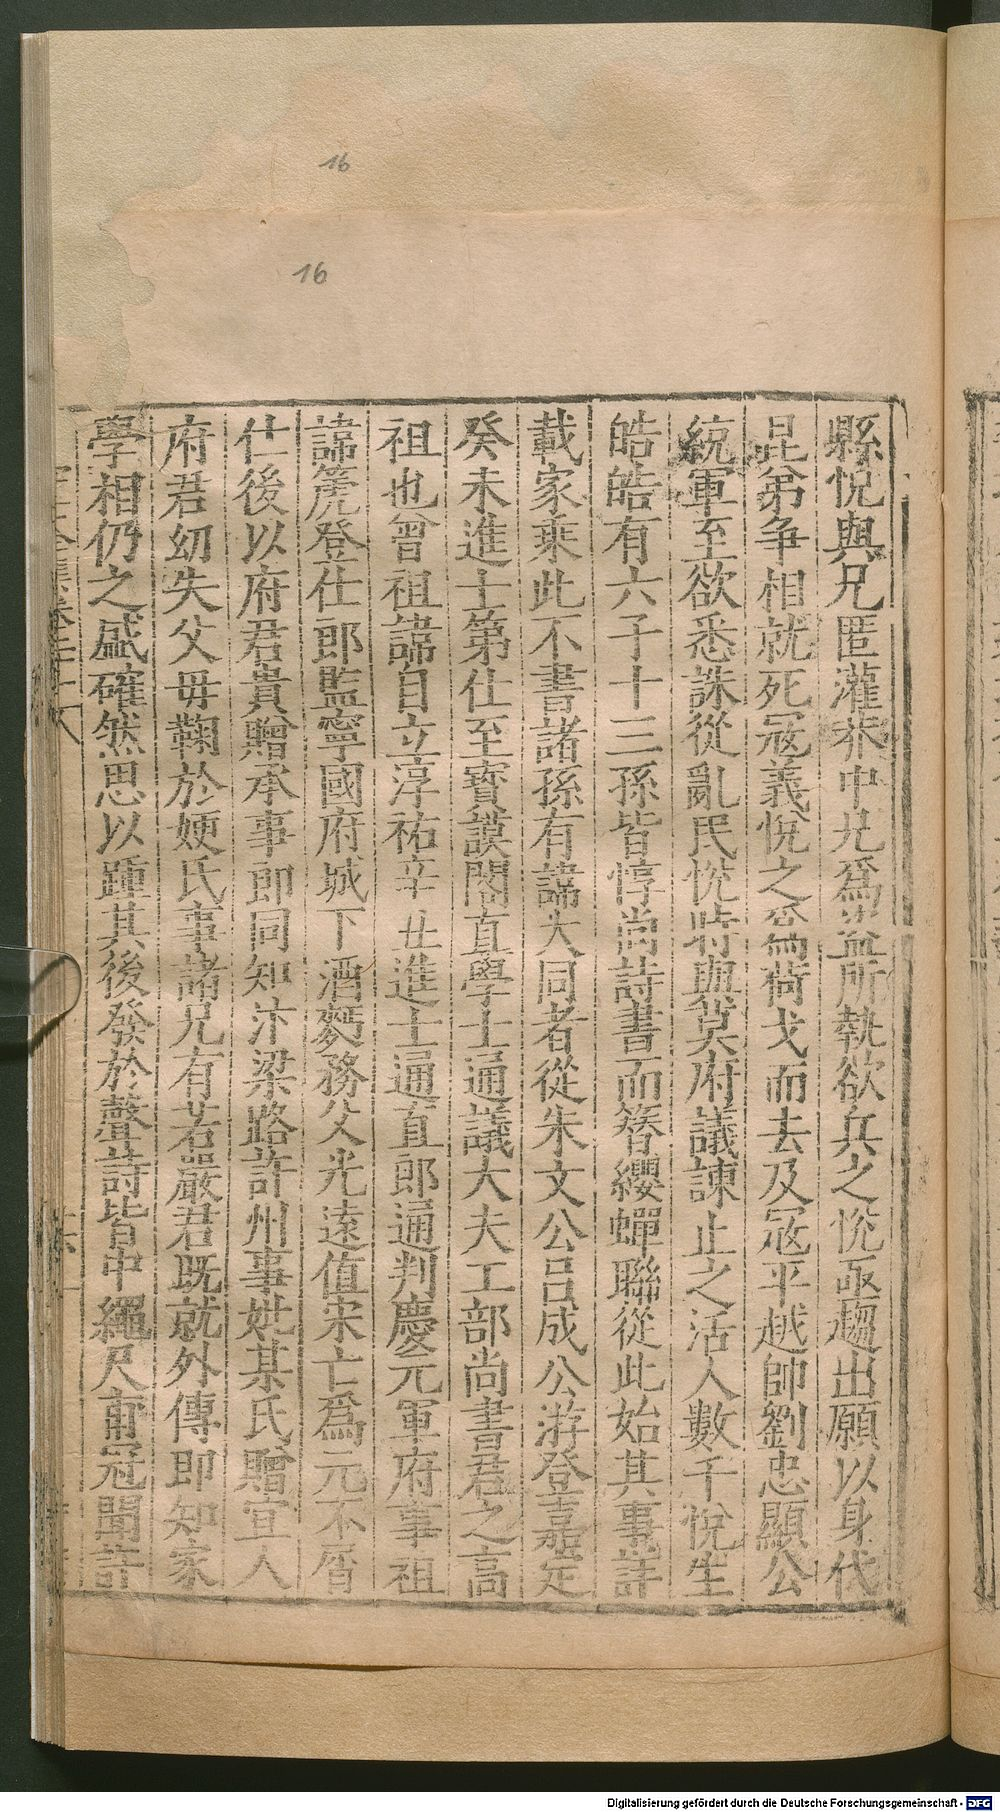 16
16
縣悅與兄匿灌莽中兄爲盜所執欲兵之悅亟趨出願以身代
昆弟爭相就死冦義悅之爲荷戈而去及冦平越帥劉忠顯公
統軍至欲悉誅從亂民悅時與冀府議諫止之活人數千悅生
皓皓有六子十三孫皆惇尚詩書而簪纓蟬聯從此始其事詳
載家乘此不書諸孫有諱大同者從朱文公呂成公游登嘉定
癸未進士第仕至寶謨閣直學士通議大夫工部尚書君之高
祖也曾祖諱自立淳祐辛丑進士通直郎通判慶元軍府事祖
諱箎登仕郎監寧國府城下酒務父光遠值宋亡爲元不屑
仕後以府君貴贈承事郎同知汴梁路許州事妣某氏贈宜人
府君幼失父毋鞠於嫂氏事諸兄有若嚴君既就外傳即知家
學相仍之盛確然思以踵其後發於聲詩皆中繩尺甫冠聞許
Digitalisierung gefördert durch die Deutsche Forschungsgemeinschaft - DFG